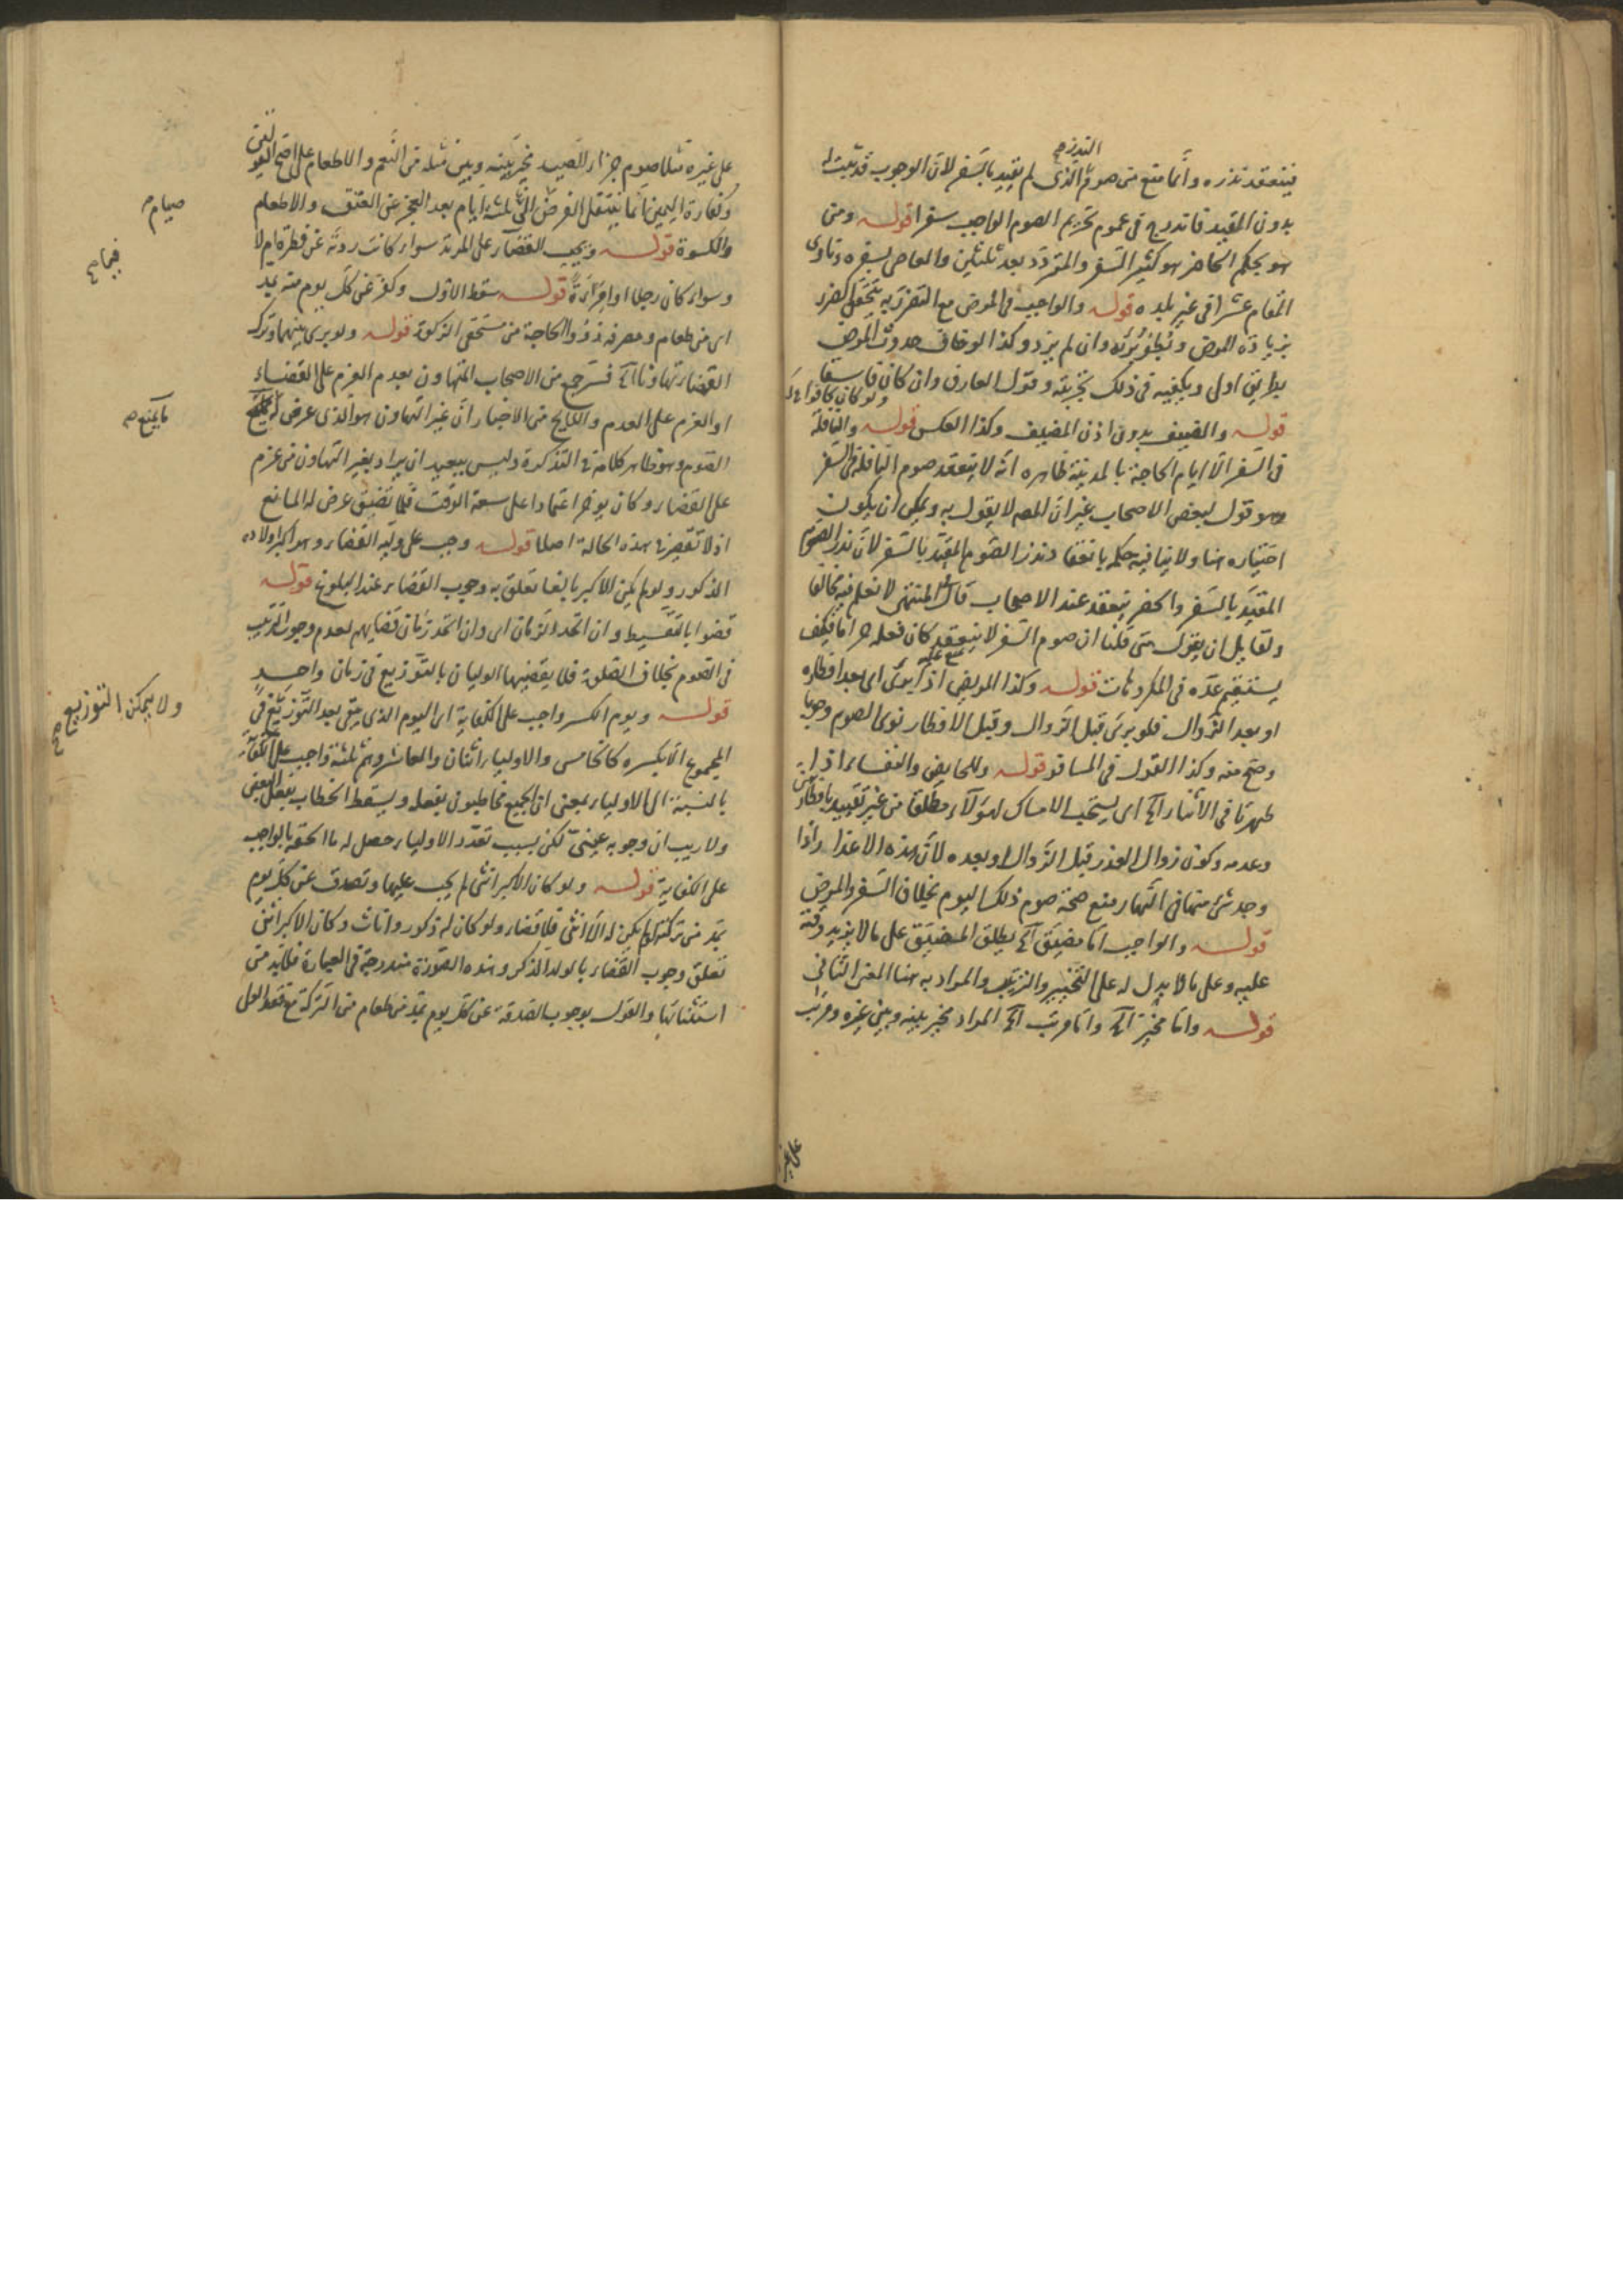 النذر صح
فينعقد نذره وانما منع من صوم الذى لم يقيد بالسفر لان الوجوب قد ثبت له
بدون المقيد فاندرج فى عموم تحريم الصوم الواجب سفرا قوله ومن
هو بحكم الحاضر هو كثير السفر والمتردد بعد ثلثين والعاصى بسفره وناوى
المقام عشرا فى غير بلده قوله والواجب فى المرض مع التضرر به يتحقق الضرر
بزيادة المرض وبطؤ برئه وان لم يزد وكذا لو خاف حدوث المرض
بطريق اولى ويكفيه فى ذلك تجربته وقول العارف وان كان فاسقا
ولو كان كافرا
قوله والضيف بدون اذن المضيف وكذا العكس قوله والنافلة
فى السفر الا ايام الحاجة بالمدينة ظاهره انه لا ينعقد صوم النافلة فى السفر
وهو قول لبعض الاصحاب غير ان المصه لا يقول به ويمكن ان يكون
اختياره هنا ولا ينافيه حكمه بانعقاد نذر الصوم المقيد بالسفر لان نذر الصوم
المقيد بالسفر والحضر ينعقد عند الاصحاب قال فى المنتهى لا نعلم فيه مخالفا
ولقايل ان يقول متى قلنا ان صوم السفر لا ينعقد كان فعله حراما فكيف
يستقيم عده فى المكروهات قوله وكذا المريض اذا برئ اى بعد افطاره
او بعد الزوال فلو برئ قبل الزوال وقبل الافطار نوى الصوم وجوبا
وصح منه وكذا القول فى المسافر قوله وللحايض والنفساء اذا
طهرتا فى الاثناء الخ اى يستحب الامساك لهؤلاء مطلقا من غير تقييد بافطار
وعدمه وكون زوال العذر قبل الزوال او بعده لان هذه الاعذار اذا
وجد شئ منها فى النهار منع صحة صوم ذلك اليوم بخلاف السفر والمرض
قوله والواجب اما مضيق الخ يطلق المضيق على ما لا يزيد وقته
عليه وعلى ما لا بدل له على التخيير والترتيب والمراد به هنا المعنى الثانى
قوله واما مخير الخ واما مرتب الخ المراد مخير بينه وبين غيره ومرتب
على غيره
على غيره مثلا صوم جزاء الصيد مخير بينه وبين مثله من النعم والاطعام على اصح القولين
وكفارة اليمين انما ينتقل الفرض الى ثلثة ايام بعد العجز عن العتق والاطعام
صيام
والكسوة قوله ويجب القضاء على المرتد سواء كانت ردته عن فطرة ام لا
وسواء كان رجلا او امراءة قوله سقط الاول وكفر عن كل يوم منه بمد
فيهما
اى من طعام ومصرفه ذوو الحاجة من مستحقى الزكوة قوله ولو برئ بينهما وترك
القضاء تهاونا الخ فسر جمع من الاصحاب المتهاون بعدم العزم على القضاء
او العزم على العدم واللايح من الاخبار ان غير المتهاون هو الذى عرض له
ما يمنع
الصوم وهو ظاهر كلامه فى التذكرة وليس ببعيد ان يراد بغير المتهاون من عزم
على القضاء وكان يؤخر اعتمادا على سعة الوقت فلما تضيق عرض له المانع
اذ لا تقصير فى هذه الحالة اصلا قوله وجب على وليه القضاء وهو اكبر اولاده
الذكور ولو لم يكن الاكبر بالغا تعلق به وجوب القضاء عند البلوغ قوله
قضوا بالتقسيط وان اتحد الزمان اى وان اتحد زمان قضايهم لعدم وجوب الترتيب
فى الصوم بخلاف الصلوة فلا يقضيها الوليان بالتوزيع فى زمان واحد
قوله ويوم الكسر واجب على الكفاية اى اليوم الذى يبقى بعد التوزيع فى
ولا يمكن التوزيع
صح
المجموع الا بكسره كالخامس والاولياء اثنان والعاشر وهم ثلثة واجب على الكفاية
بالنسبة الى الاولياء بمعنى ان الجميع مخاطبون بفعله ويسقط الخطاب بفعل البعض
ولا ريب ان وجوبه عينى لكن بسبب تعدد الاولياء حصل له ما الحقه بالواجب
على الكفاية قوله ولو كان الاكبر انثى لم يجب عليها وتصدق عن كل يوم
بمد من تركته لو لم يكن له الا انثى فلا قضاء ولو كان له ذكور واناث وكان الاكبر انثى
تعلق وجوب القضاء بالولد الذكر وهذه الصورة مندرجة فى العبارة فلا بد من
استثنائها والقول بوجوب الصدقة عن كل يوم بمد من طعام من التركة مع فقد الولى